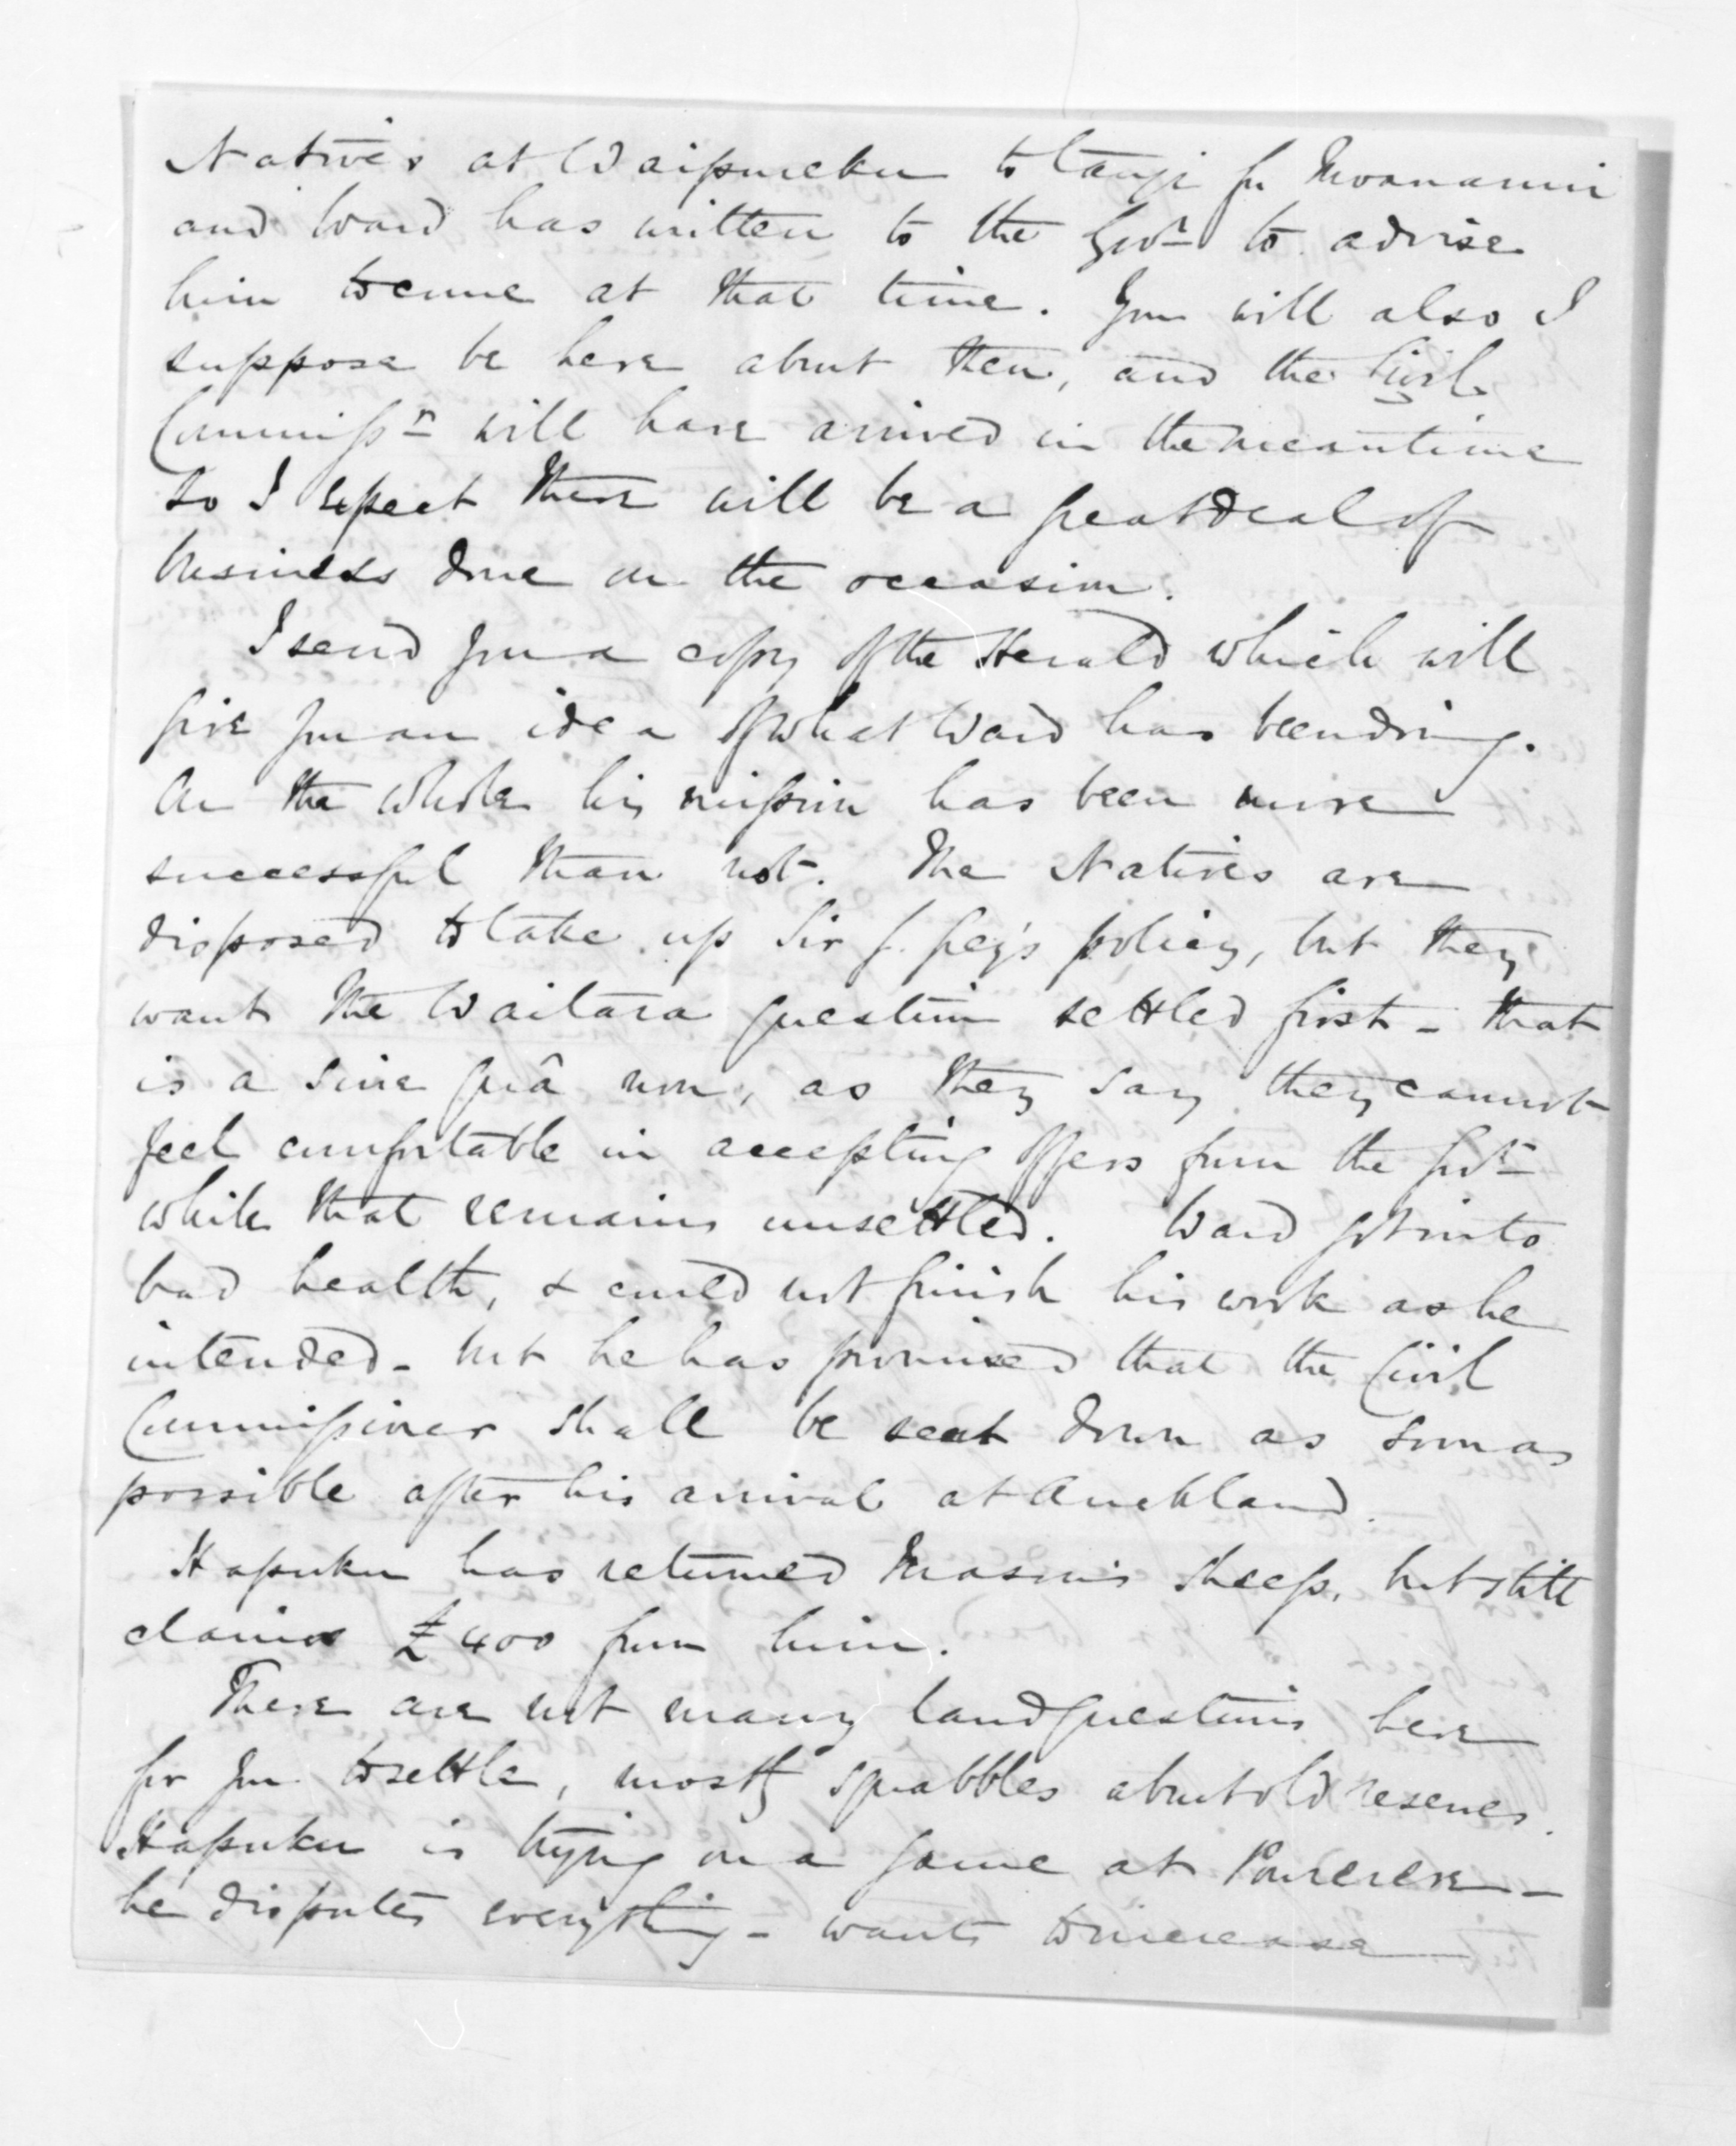 Natives at Waipureku to tangi for Moananui
and Ward has written to the Govr to advise
him to come at that time. You will also I
suppose be here about then, and the Civil
Commissr will have arrived in the meantime
so I expect there will be a great deal of
business done on the occasion.
I send you a copy of the Herald which will
give you an idea of what Ward has been doing.
On the whole his mission has been more
successful than not. The Natives are
disposed to take up Sir G. Grey's policy, but they
want the Waitara question settled first - that
is a sine quâ non, as they say they cannot
feel comfortable in accepting offers from the Govt
while that remains unsettled. Ward got into
bad health, & could not finish his work as he
intended - but he has promised that the Civil
Commissioner shall be sent down as soon as
possible after his arrival at Auckland.
Hapuku has returned Mason's sheep, but still
claims £400 from him.
There are not many land questions here
for you to settle, mostly squabbles about old reserves.
Hapuku is trying on a game at Pourerere -
he disputes everything - wants to increase